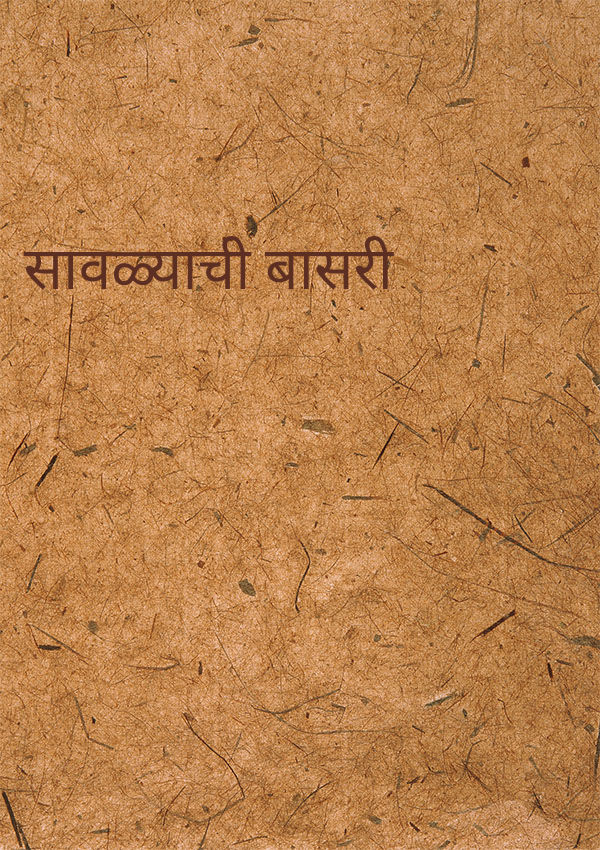 सावळ्याची बासरी